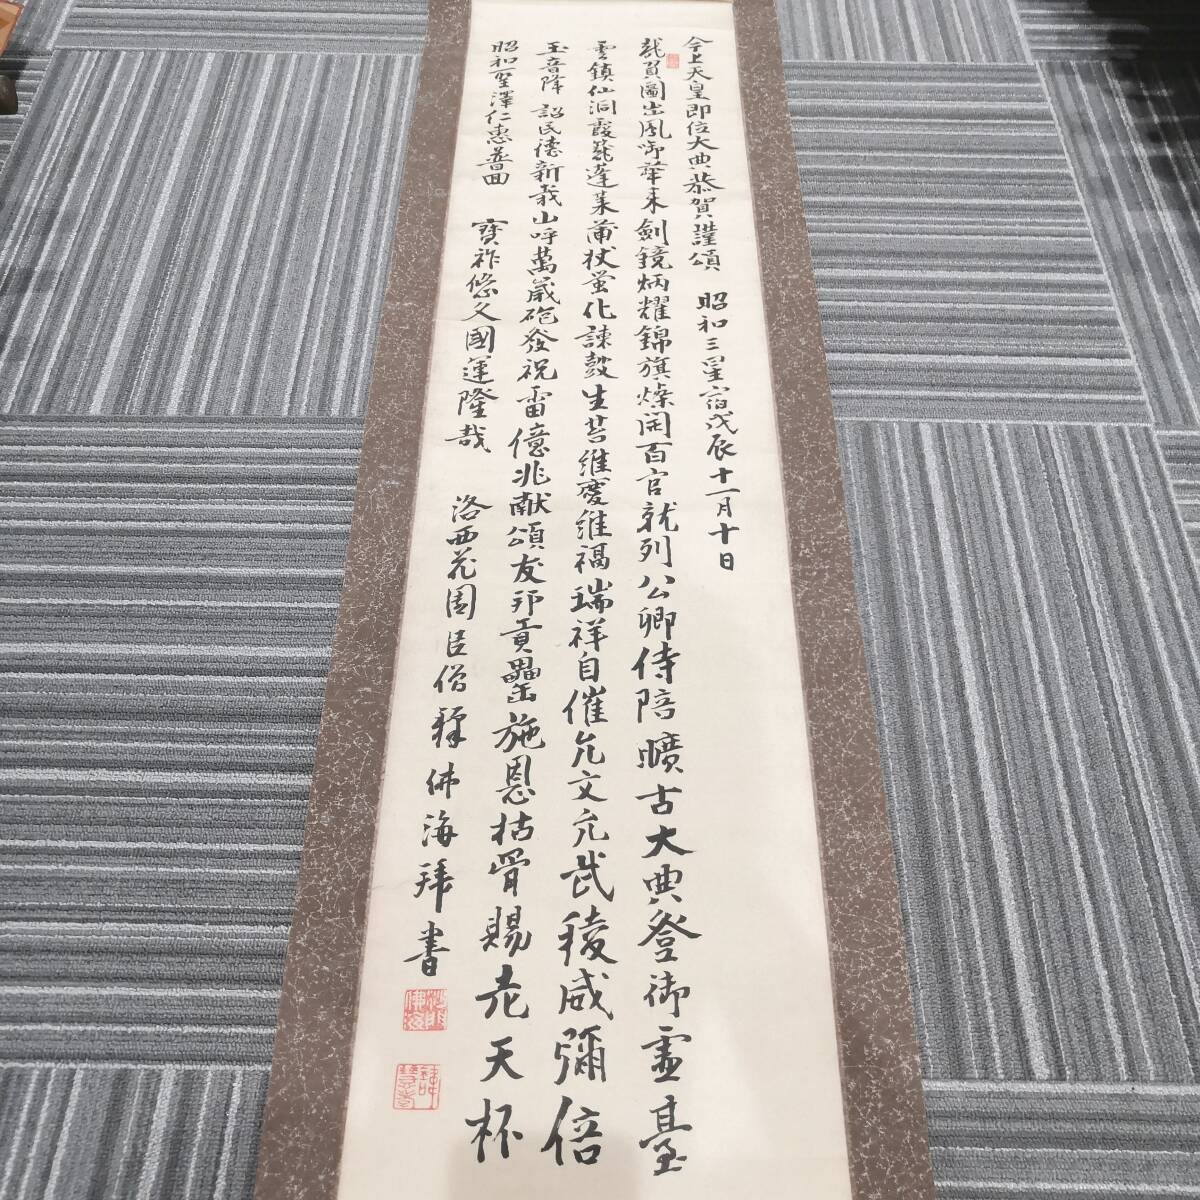 今上天皇即位大典恭賀謹頌 昭和三星宿戊辰十一月十日
龍負圖出鳳啣華来劍鏡炳耀錦旗燦開百官就列公卿侍陪曠古大典登御靈臺
雲鎮仙洞霞籠蓬莱蒲杖螢化諫鼓生苔維慶維禎瑞祥自催允文允武稜威彌倍
玉音降 詔民徳新哉山呼萬歳砲發祝雷億兆献頌友邦貢罍施恩枯骨賜老天杯
昭和聖澤仁恵普西 寶祚悠久國運隆哉 洛西花園臣僧釋佛海拜書
沙門佛海